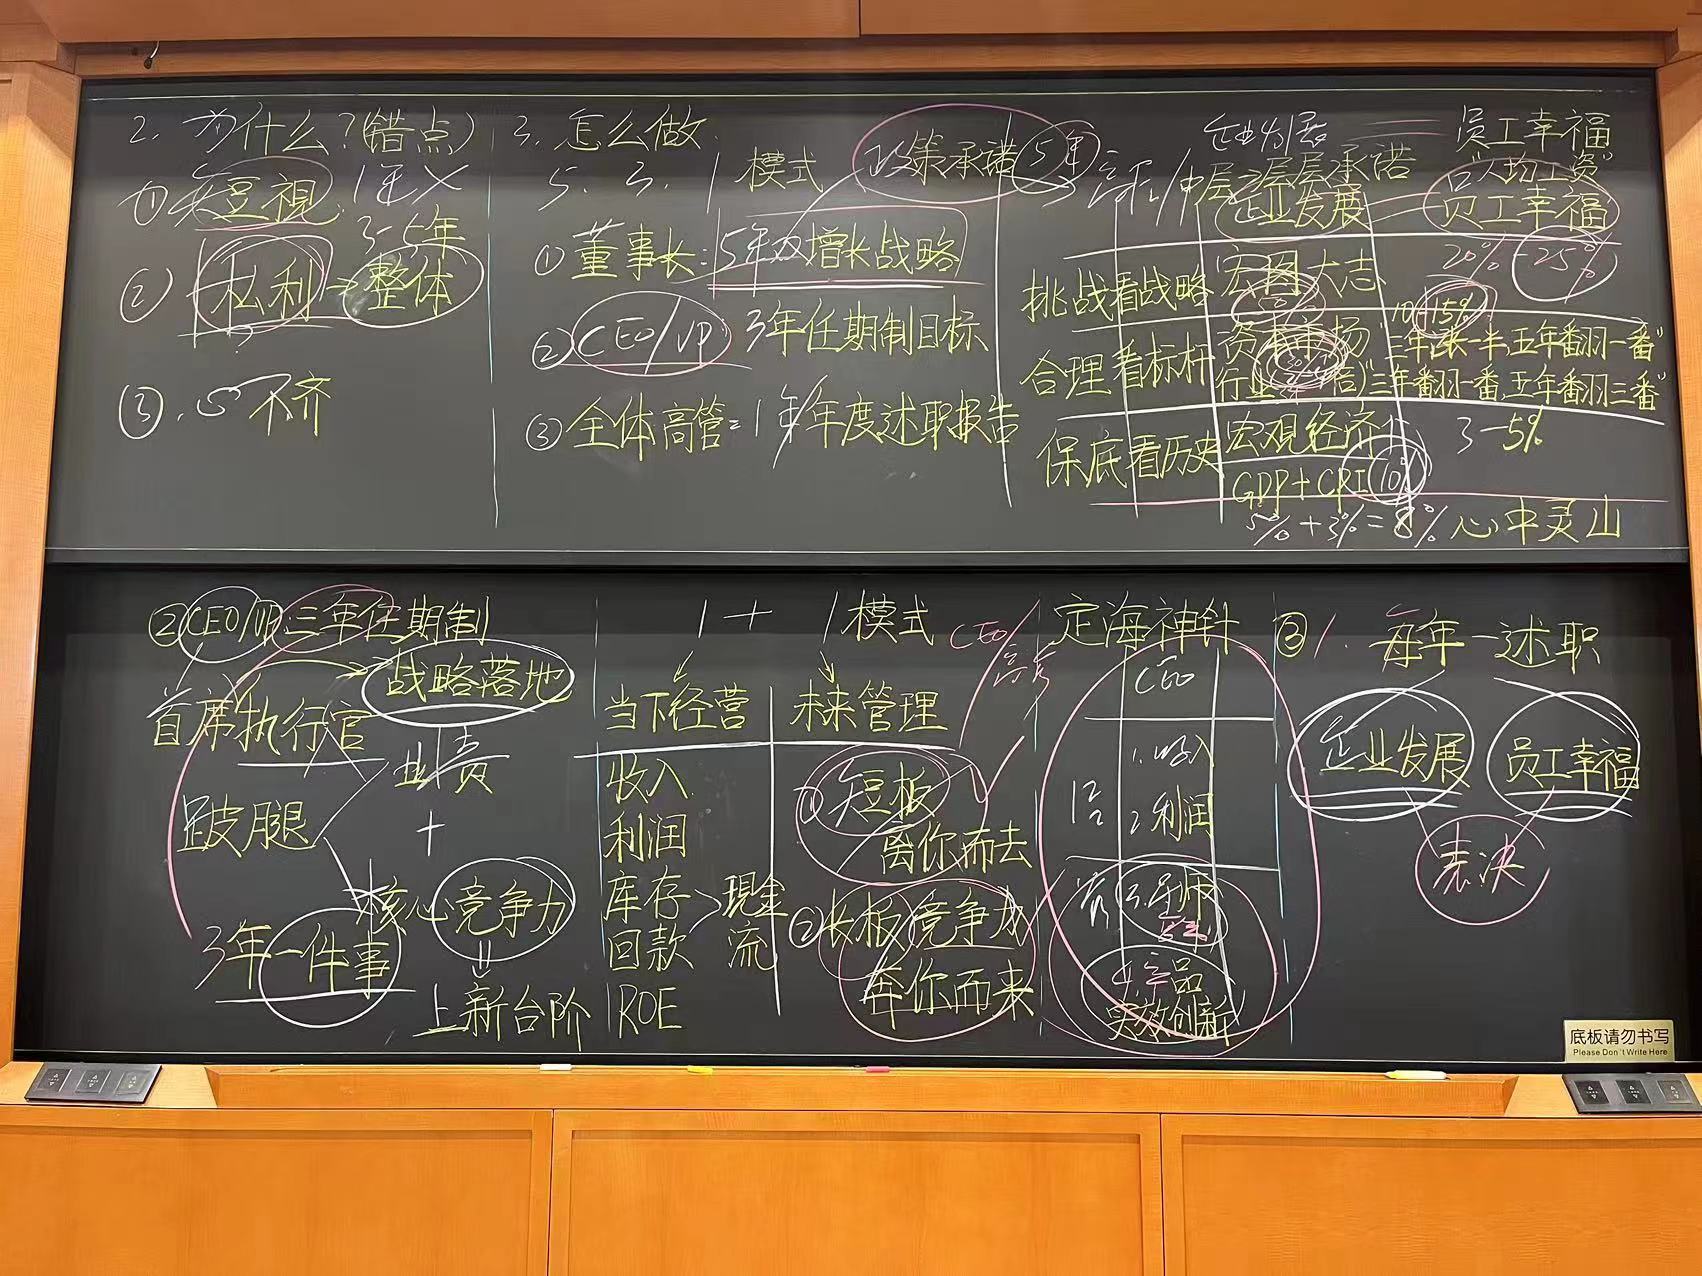 2. 为什么?(错点)
① 短视 1年X
3-5年
② 私利→整体
③ 心不齐
3. 怎么做
5. 3. 1 模式
政策承诺 5年
① 董事长: 5年双增长战略
② CEO/VP: 3年任期制目标
③ 全体高管= 1年年度述职报告
企业发展 员工幸福
中层 层层承诺 "人均工资"
企业发展 员工幸福
挑战看战略 宏图大志 20%-25%
10-15%
合理看标杆 资本市场 "三年涨一半,五年翻一番"
行业 "三年翻一番,五年翻三番"
保底看历史 宏观经济 3-5%
GDP+CPI 10%
5%+3%=8% 心中灵山
② CEO/VP 三年任期制
首席执行官 战略落地
业责
跛腿 +
核心竞争力
3年一件事
上新台阶
1 + 1模式
当下经营 未来管理
收入
利润
库存 > 现金流
回款
ROE
① 短板
离你而去
② 长板 竞争力
奔你而来
CEO/
定海神针
CEO
1. 收入
2 利润
实效创新
③ 1. 每年一述职
企业发展 员工幸福
表决
底板请勿书写
Please Don't Write Here